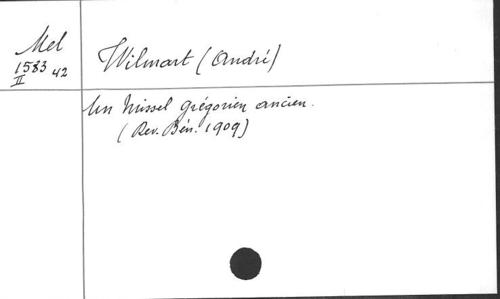 Mel
1583 42
II
Wilmart (André)
Un Missel grégorien ancien.
(Rev. Bén. 1909)